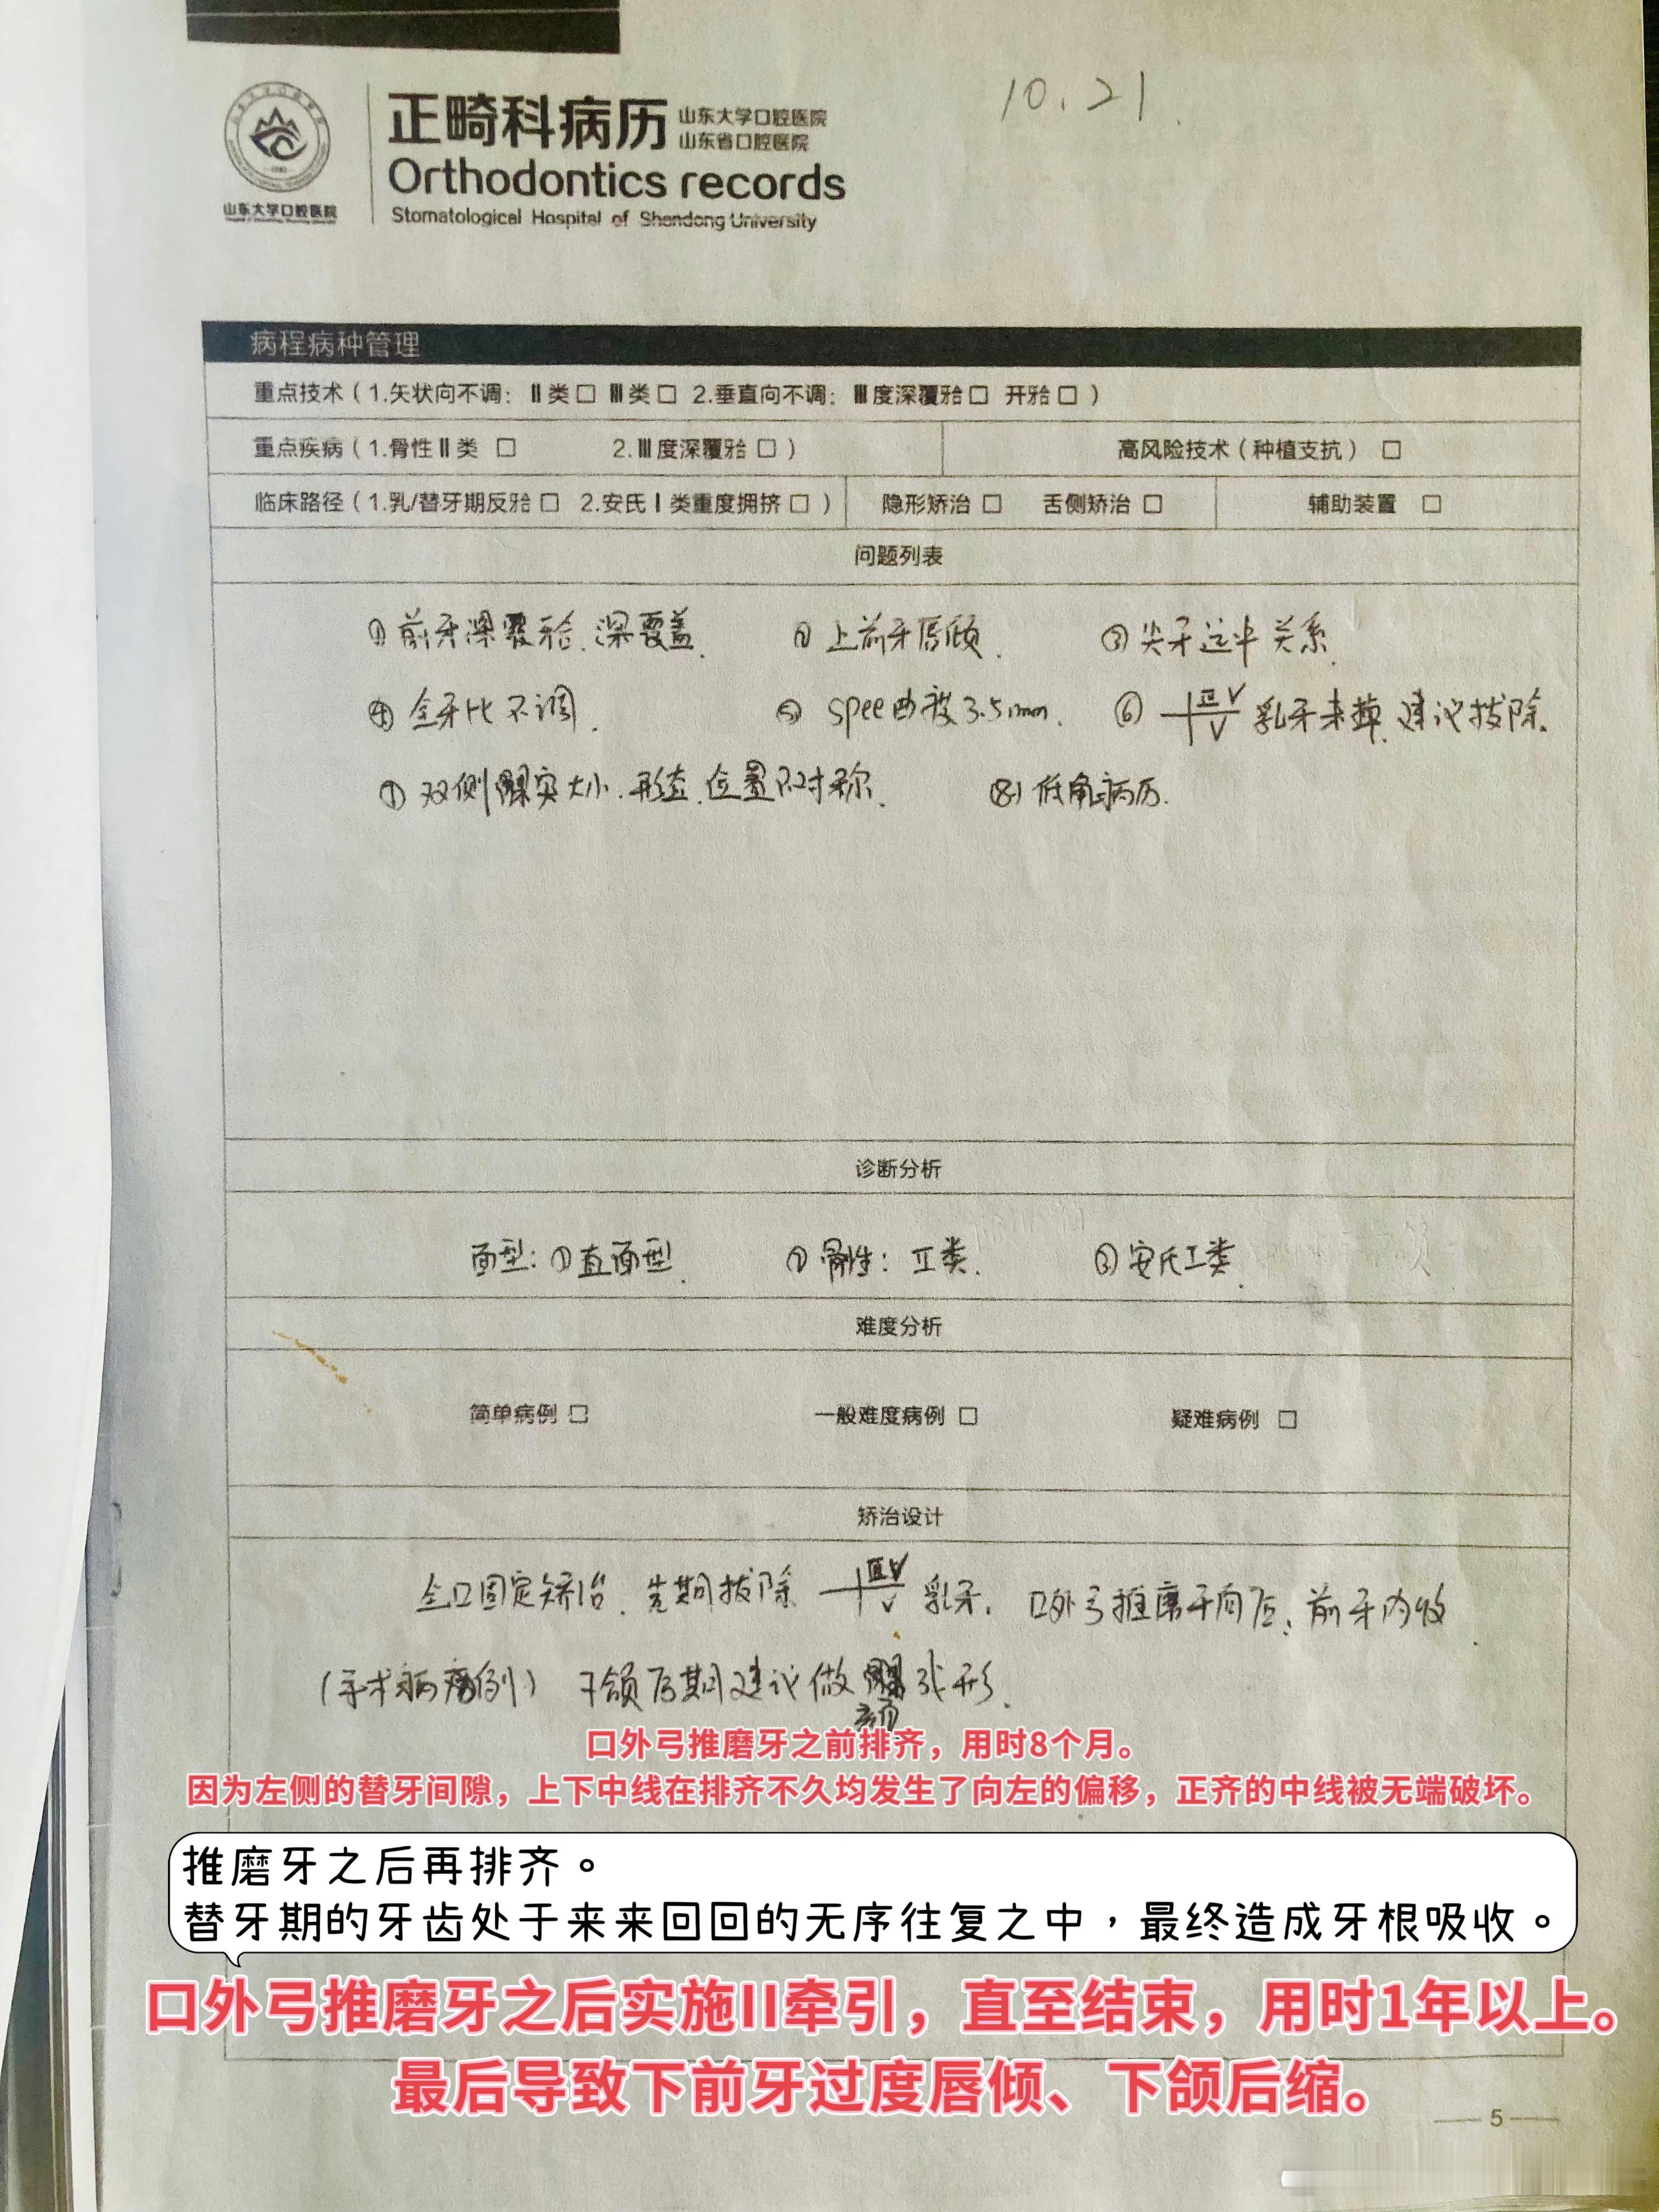 10.21
正畸科病历 山东大学口腔医院
山东省口腔医院
Orthodontics records
Stomatological Hospital of Shandong University
山东大学口腔医院
病程病种管理
重点技术（1.矢状向不调：Ⅱ类□ Ⅲ类□ 2.垂直向不调：Ⅲ度深覆𬌗□ 开𬌗□）
重点疾病（1.骨性Ⅱ类 □ 2.Ⅲ度深覆𬌗□） 高风险技术（种植支抗） □
临床路径（1.乳/替牙期反𬌗□ 2.安氏Ⅰ类重度拥挤□） 隐形矫治 □ 舌侧矫治 □ 辅助装置 □
问题列表
①前牙深覆𬌗.深覆盖. ②上前牙唇倾. ③尖牙远中关系.
④全牙比不调. ⑤spee曲度3.5mm. ⑥ Ⅲ V V 乳牙未掉.建议拔除.
⑦双侧髁突大小.形态.位置不对称. ⑧低角病历.
诊断分析
面型：①直面型. ②骨性：Ⅱ类. ③安氏Ⅰ类.
难度分析
简单病例 □ 一般难度病例 □ 疑难病例 □
矫治设计
全口固定矫治.先期拔除 V V 乳牙.口外弓推磨牙向后.前牙内收.
(手术病例) 下颌后期建议做颏成形.
口外弓推磨牙之前排齐，用时8个月。
因为左侧的替牙间隙，上下中线在排齐不久均发生了向左的偏移，正齐的中线被无端破坏。
推磨牙之后再排齐。
替牙期的牙齿处于来来回回的无序往复之中，最终造成牙根吸收。
口外弓推磨牙之后实施II牵引，直至结束，用时1年以上。
最后导致下前牙过度唇倾、下颌后缩。
5